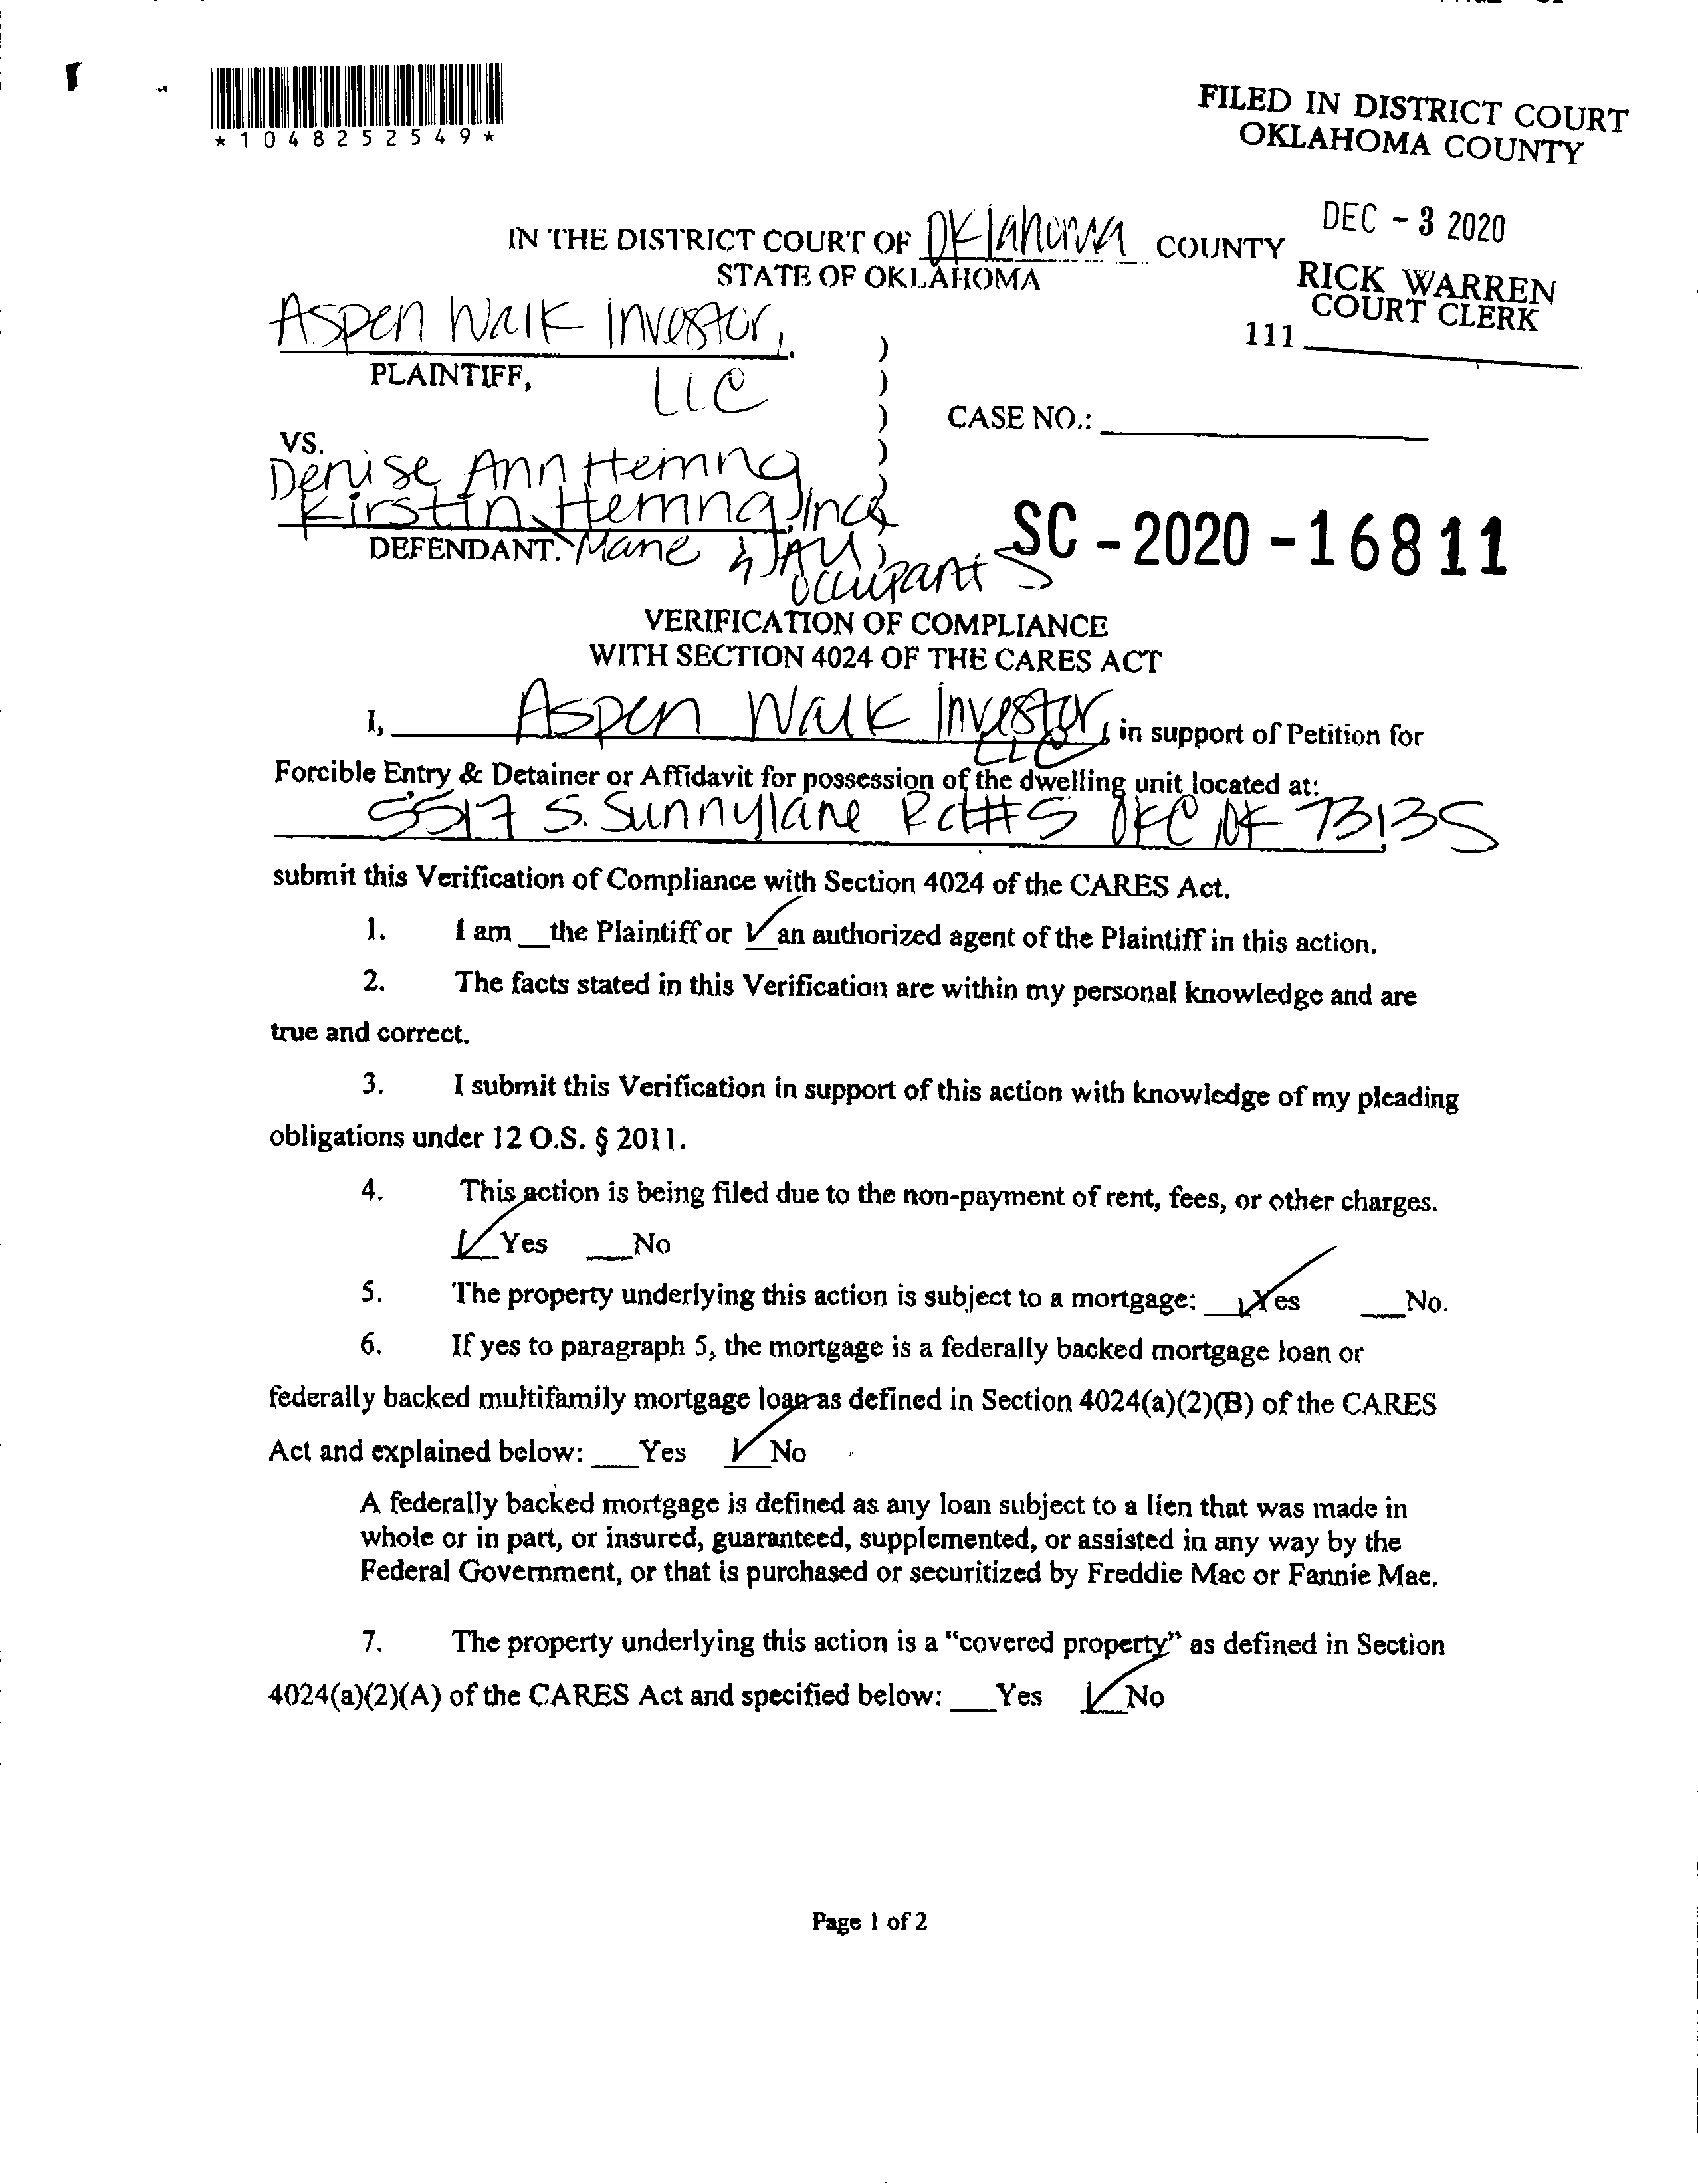 *1048252549*
FILED IN DISTRICT COURT
OKLAHOMA COUNTY
DEC - 3 2020
RICK WARREN
COURT CLERK
111
IN THE DISTRICT COURT OF Oklahoma COUNTY
STATE OF OKLAHOMA
Aspen Walk Investor,
LLC
PLAINTIFF,
CASE NO.:
VS.
Denise Ann Hemng
Kirstin Hemng
DEFENDANT. Marie & All
occupants
SC - 2020 - 16811
VERIFICATION OF COMPLIANCE
WITH SECTION 4024 OF THE CARES ACT
I, Aspen Walk Investor, LLC, in support of Petition for
Forcible Entry & Detainer or Affidavit for possession of the dwelling unit located at:
5517 S. Sunnylane Rd #5 OKC OK 73135
submit this Verification of Compliance with Section 4024 of the CARES Act.
1. I am __the Plaintiff or ✓ an authorized agent of the Plaintiff in this action.
2. The facts stated in this Verification are within my personal knowledge and are
true and correct.
3. I submit this Verification in support of this action with knowledge of my pleading
obligations under 12 O.S. § 2011.
4. This action is being filed due to the non-payment of rent, fees, or other charges.
✓ Yes __No
5. The property underlying this action is subject to a mortgage: ✓ Yes __No.
6. If yes to paragraph 5, the mortgage is a federally backed mortgage loan or
federally backed multifamily mortgage loan as defined in Section 4024(a)(2)(B) of the CARES
Act and explained below: __Yes ✓ No
A federally backed mortgage is defined as any loan subject to a lien that was made in
whole or in part, or insured, guaranteed, supplemented, or assisted in any way by the
Federal Government, or that is purchased or securitized by Freddie Mac or Fannie Mae.
7. The property underlying this action is a “covered property” as defined in Section
4024(a)(2)(A) of the CARES Act and specified below: __Yes ✓ No
Page 1 of 2